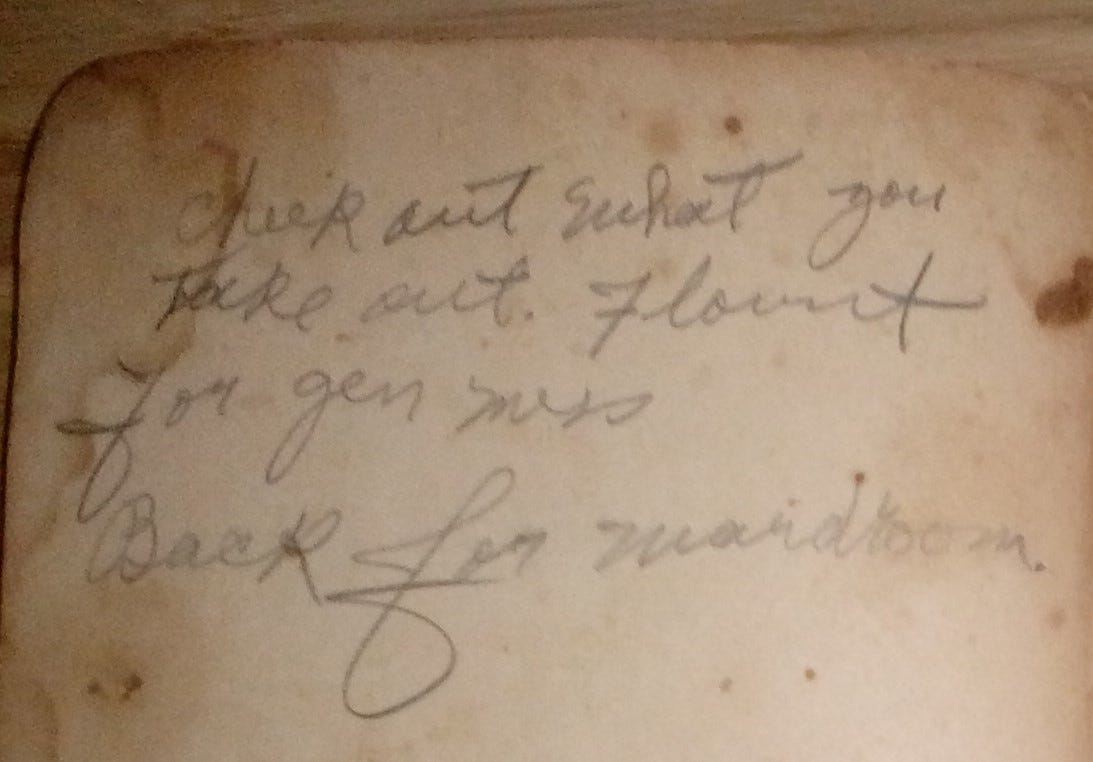 check out what you
Take out. Flount
for gen mess
Back for wardroom.